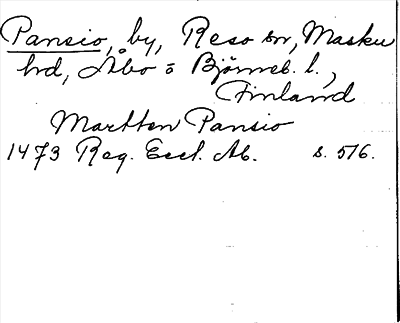 Pansio, by, Reso sn, Masku
hd, Åbo o Björneb. l.,
Finland
Martten Pansio
1473 Reg. Eccl. Ab. s. 516.